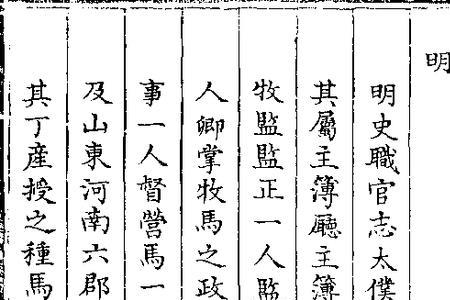 明
明史職官志太僕
其屬主簿廳主簿
牧監監正一人監
人卿掌牧馬之政
事一人督營馬一
及山東河南六郡
其丁產授之種馬